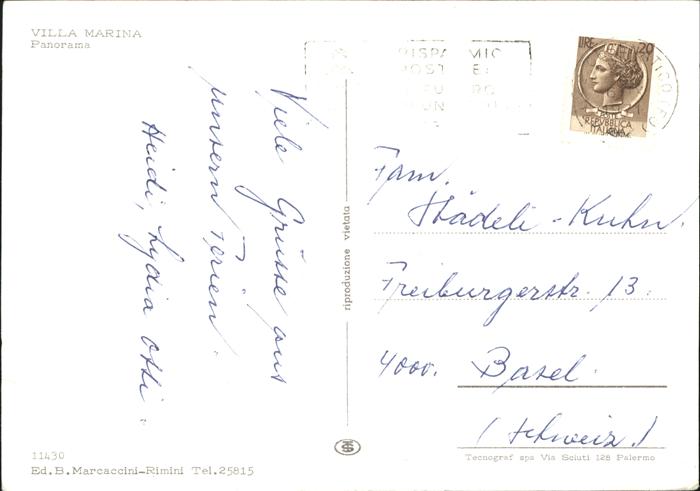 VILLA MARINA
Panorama
Viele Grüsse aus
unsern Ferien.
Heidi, Lydia
11430
Ed. B. Marcaccini-Rimini Tel. 25815
riproduzione vietata
LIRE 20
REPVBBLICA
ITALIANA
Fam.
Hädeli-Kuhn.
Freiburgerstr. 13.
4000. Basel.
(Schweiz.)
Tecnograf spa Via Sciuti 128 Palermo